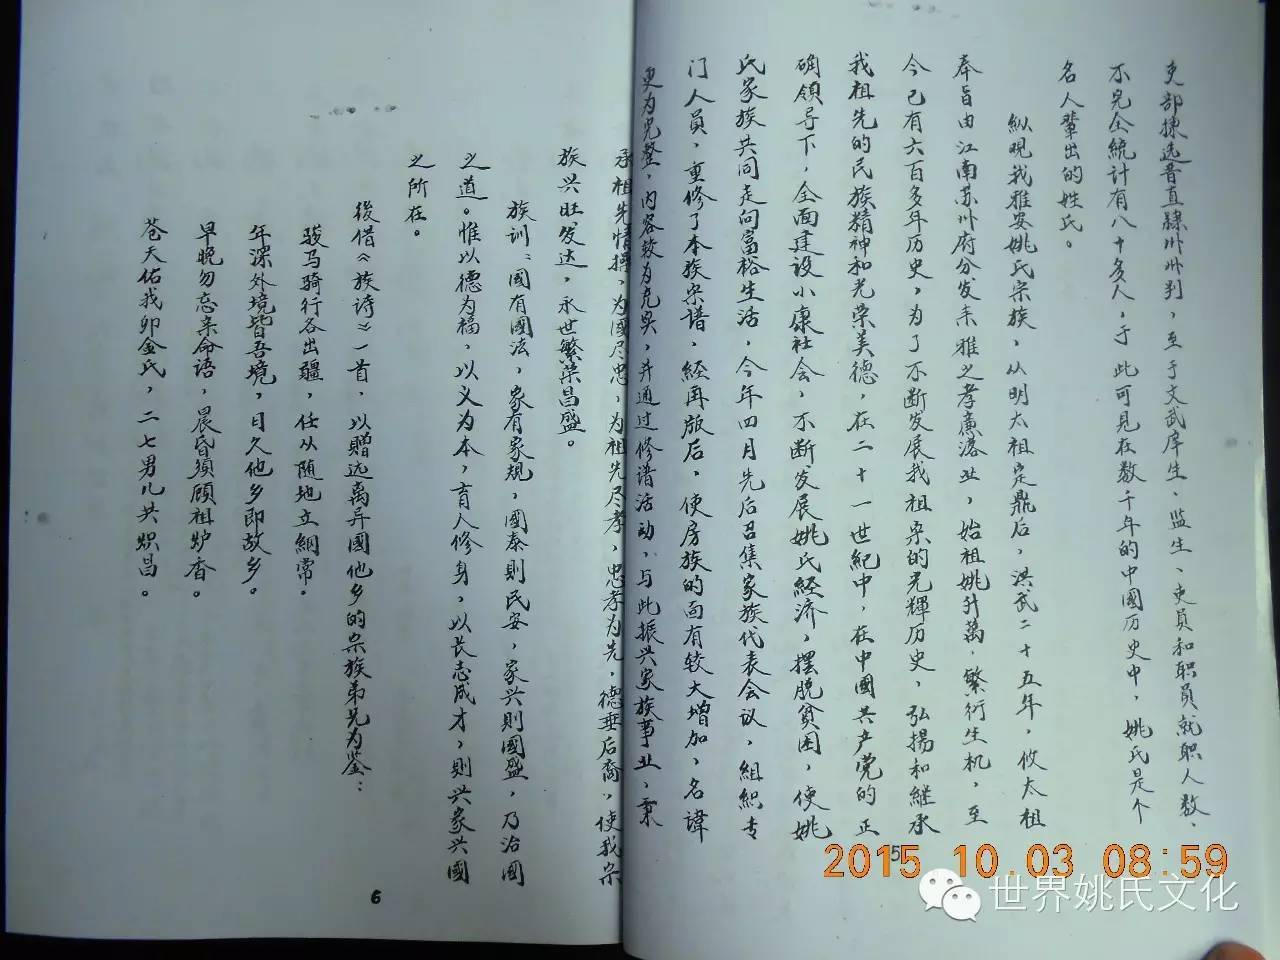 吏部拣选晋直隸州州判，至于文武庠生、监生、吏員和职員就职人数、
不完全统計有八十多人，于此可見在数千年的中國历史中，姚氏是个
名人輩出的姓氏。
纵观我雅安姚氏宗族，从明太祖定鼎后，洪武二十五年，攸太祖
奉旨由江南苏州府分发来雅之孝廉落业，始祖姚升萬，繁衍生机，至
今已有六百多年历史，为了不断发展我祖宗的光輝历史，弘揚和継承
我祖先的民族精神和光荣美德，在二十一世紀中，在中國共产党的正
确領导下，全面建设小康社会，不断发展姚氏经济，摆脱贫困，使姚
氏家族共同走向富裕生活，今年四月先后召集家族代表会议，組織专
门人員，重修了本族宗谱，経再版后，使房族的面有较大增加，名諱
更为完整，内容较为充实，并通过修谱活动，与此振兴家族事业，秉
承祖先情操，为國尽忠，为祖先尽孝，忠孝为先，德垂后裔，使我宗
族兴旺发达，永世繁荣昌盛。
族训：國有國法，家有家規，國泰則民安，家兴則國盛，乃治國
之道。惟以德为福，以义为本，育人修身，以长志成才，則兴家兴國
之所在。
後借《族诗》一首，以赠远离异國他乡的宗族弟兄为鉴：
骏马骑行各出疆，任从随地立綱常。
年深外境皆吾境，日久他乡即故乡。
早晚勿忘亲命语，晨昏须顾祖炉香。
苍天佑我卯金氏，二七男儿共炽昌。
5
6
2015 10 03 08:59
世界姚氏文化